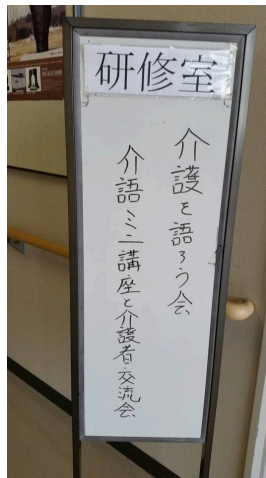 研修室
介護を語ろう会
介語ミニ講座と介護者・交流会